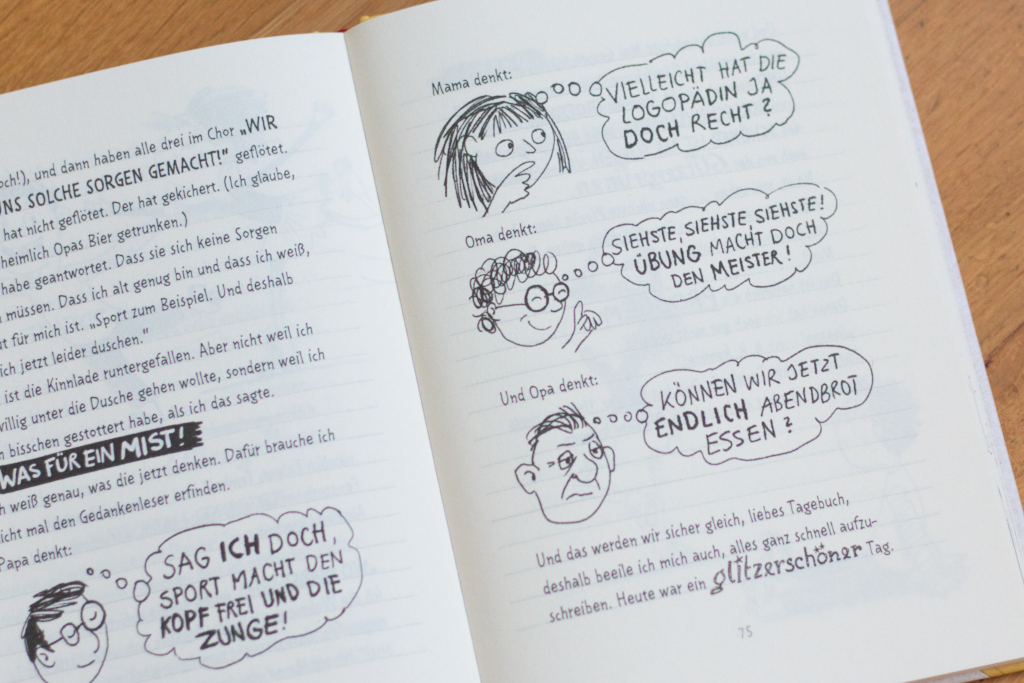 och!), und dann haben alle drei im Chor „WIR
UNS SOLCHE SORGEN GEMACHT!" geflötet.
hat nicht geflötet. Der hat gekichert. (Ich glaube,
heimlich Opas Bier getrunken.)
habe geantwortet. Dass sie sich keine Sorgen
müssen. Dass ich alt genug bin und dass ich weiß,
ut für mich ist. „Sport zum Beispiel. Und deshalb
ich jetzt leider duschen."
ist die Kinnlade runtergefallen. Aber nicht weil ich
willig unter die Dusche gehen wollte, sondern weil ich
n bisschen gestottert habe, als ich das sagte.
WAS FÜR EIN MIST!
ch weiß genau, was die jetzt denken. Dafür brauche ich
icht mal den Gedankenleser erfinden.
Papa denkt:
SAG ICH DOCH,
SPORT MACHT DEN
KOPF FREI UND DIE
ZUNGE!
Mama denkt:
VIELLEICHT HAT DIE
LOGOPÄDIN JA
DOCH RECHT?
Oma denkt:
SIEHSTE, SIEHSTE, SIEHSTE!
ÜBUNG MACHT DOCH
DEN MEISTER!
Und Opa denkt:
KÖNNEN WIR JETZT
ENDLICH ABENDBROT
ESSEN?
Und das werden wir sicher gleich, liebes Tagebuch,
deshalb beeile ich mich auch, alles ganz schnell aufzu-
schreiben. Heute war ein glitzerschöner Tag.
75